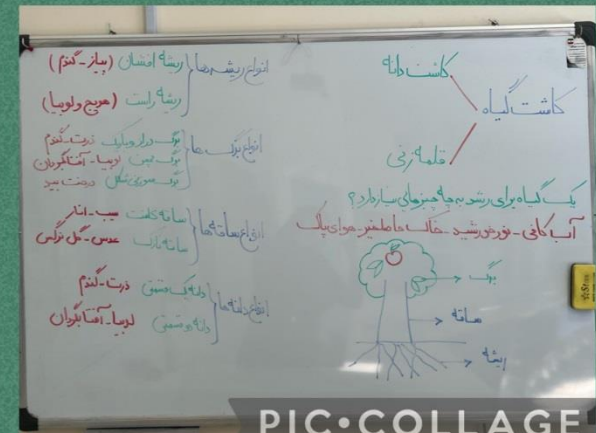 کاشت گیاه
کاشت دانه
قلمه زنی
یک گیاه برای رشد به چه چیزهایی نیاز دارد؟
آب کافی - نور خورشید - خاک حاصلخیز - هوای پاک
برگ
ساقه
ریشه
انواع ریشه ها
ریشه افشان (پیاز - گندم)
ریشه راست (هویج و لوبیا)
انواع برگ ها
برگ دراز و باریک ذرت - گندم
برگ پهن لوبیا - آفتابگردان
برگ سوزنی شکل درخت
انواع ساقه ها
ساقه کلفت سیب - انار
ساقه نازک عدس - گل نرگس
انواع دانه ها
دانه یک قسمتی ذرت - گندم
دانه دو قسمتی لوبیا - آفتابگردان
PIC•COLLAGE